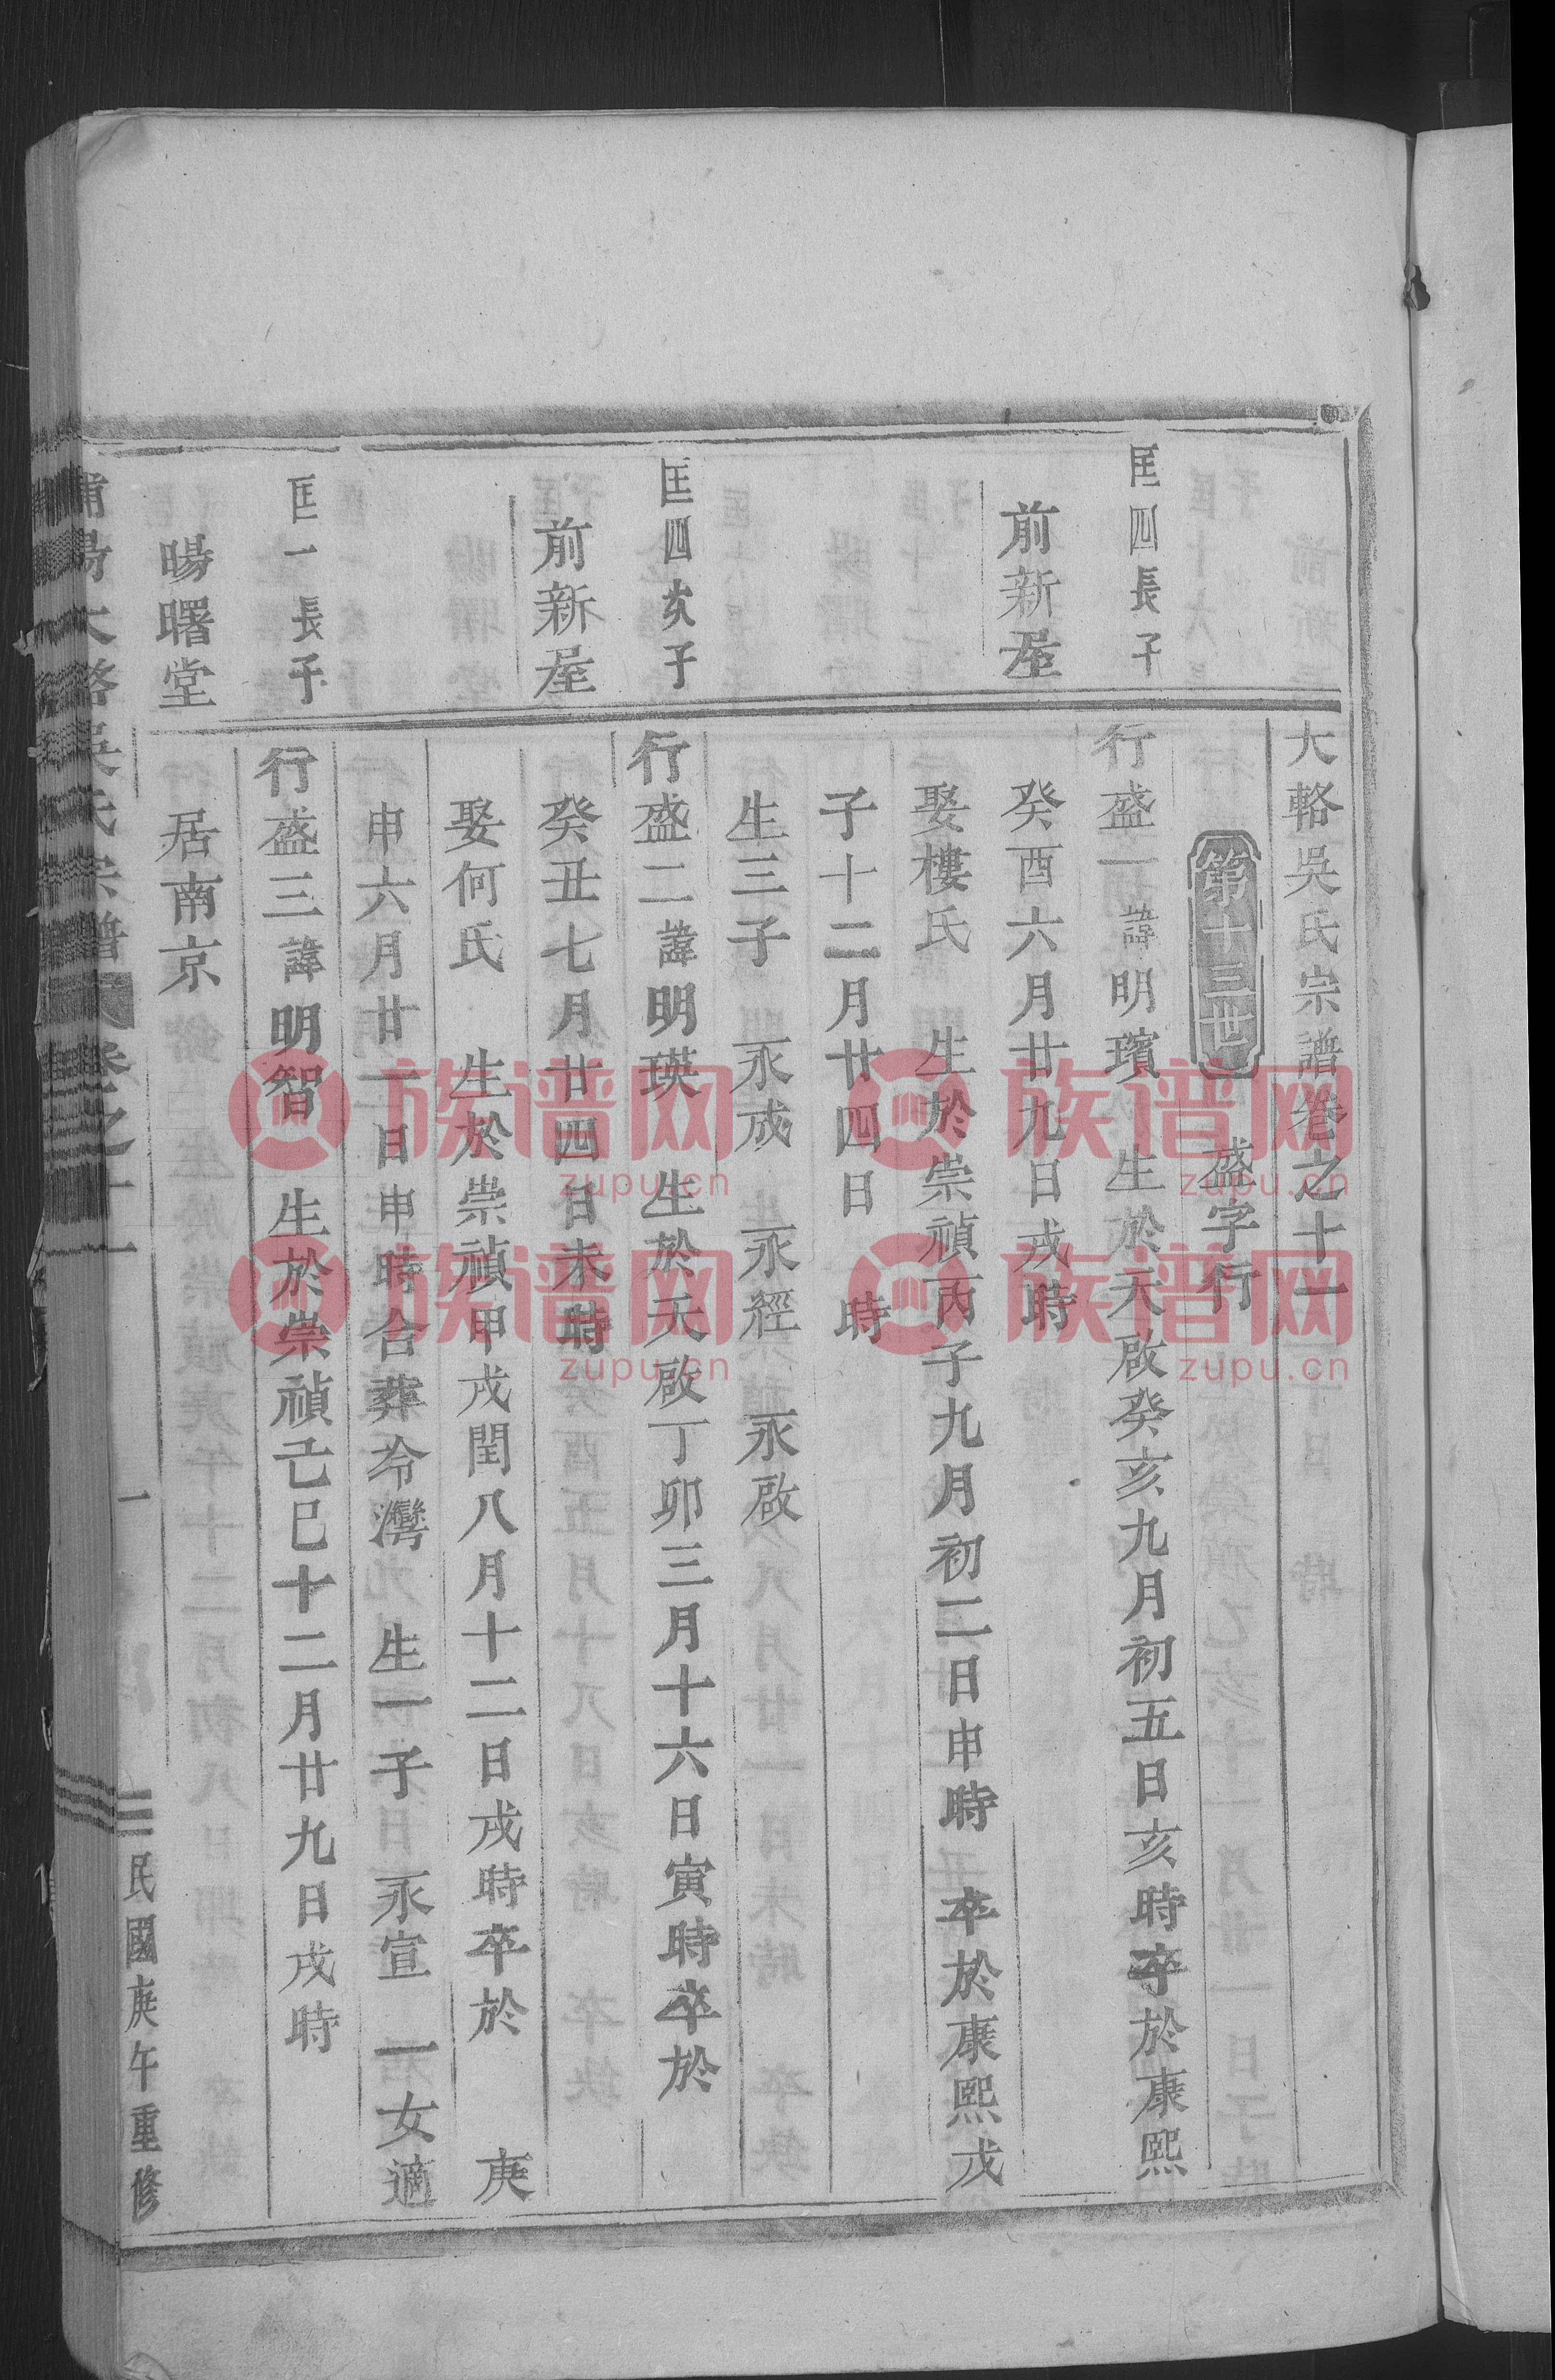 大輅吳氏宗譜卷之十一
第十三世 盛字行
匡四長子
行盛一諱明璸 生於天啟癸亥九月初五日亥時卒於康熙
前新屋
癸酉六月廿九日戌時
娶樓氏 生於崇禎丙子九月初二日申時 卒於康熙戊
子十二月廿四日 時
生三子 永成 永經 永啟
匡四次子
行盛二諱明瑛 生於天啟丁卯三月十六日寅時卒於
前新屋
癸丑七月廿四日未時
娶何氏 生於崇禎甲戌閏八月十二日戌時卒於 庚
申六月廿一日申時合葬冷灣 生一子 永宣 一女適
匡一長子
行盛三諱明智 生於崇禎己巳十二月廿九日戌時
暘曙堂
居南京
浦陽大輅吳氏宗譜 卷之十一 一 民國庚午重修
族谱网
zupu.cn
族谱网
zupu.cn
族谱网
zupu.cn
族谱网
zupu.cn